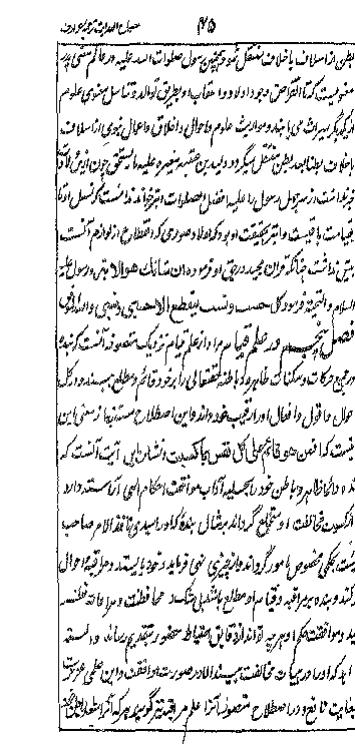 ۴۵
بطن از اسلاف باخلاف منتقل شود همچنین رسول صلوات الله علیه در عالم معنی پدر
معنویست که تا انقراض وجود اولاد و اعقاب او بطریق توالد و تناسل معنوی علوم
از یکدیگر میراث می یابند و مواریث علوم و احوال و اخلاق و اعمال نبوی از اسلاف
باخلاف بطنا بعد بطن منتقل میگردد ولید بن مغیره علیه ما یستحق چون
رسول را علیه افضل الصلوات ابتر خواند ندانست که نسل او تا
قیامت باقیست و ابتر بحقیقت او بود که اولاد صوری که انقطاع از لوازم آنست
بیش نداشت چنانکه قرآن مجید در حق او فرموده ان شانئک هو الابتر و رسول علیه
السلام و التحیة فرمود کل حسب و نسب ینقطع الا حسبی و نسبی
فصل پنجم در علم قیام مراد از علم قیام نزدیک متصوفه آنست که بنده
در جمیع حرکات و سکنات ظاهره و باطنه حق تعالی را بر خود قائم و مطلع بیند و در کل
احوال و اقوال و افعال او را رقیب خود داند و این اصطلاح مستنبط از معنی این
آیتست که افمن هو قائم علی کل نفس بما کسبت و نشان این آیت آنست که
بنده دائما ظاهر و باطن خود را بحلیه آداب موافقت احکام الهی آراسته دارد
از کسوت مخالفت او منخلع گرداند بر مثال بنده که او را سیدی نافذ الامر صاحب
بحکمی مخصوص مامور گرداند و از چیزی نهی فرماید و خود بایستد و مراقبه احوال
کند و بنده بر مراقبه و قیام او مطلع باشد بی شک در محافظت و مراعات
و موافقت حکم او هر چه از اندازه احتیاط حضور بتقدیم رساند
که او را در هیات مخالفت نبیند الا در صورت موافقت و این علمی عزیزست
بغایت نافع و در اصطلاح متصوفه آنرا علم مراقبت نیز گویند هر که آنرا